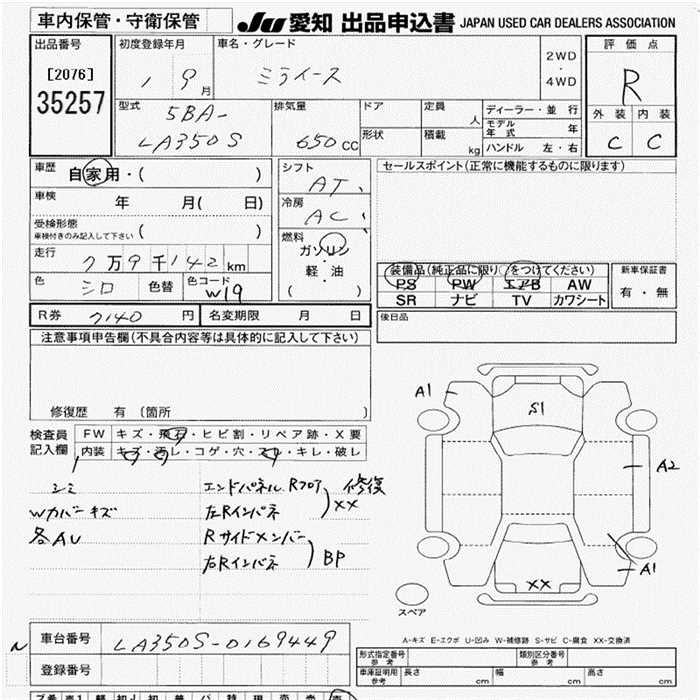 車内保管・守衛保管
JU 愛知 出品申込書 JAPAN USED CAR DEALERS ASSOCIATION
出品番号
[2076]
35257
初度登録年月
1 9月
車名・グレード
ミライース
2WD
・
4WD
評価点
R
外装 内装
C C
型式
5BA-
LA350S
排気量
650cc
ドア
形状
定員 人
積載 kg
ディーラー・並行
モデル年式 年
ハンドル 左・右
車歴
自家用・( )
車検
年 月( 日)
受検形態
車検付きのみ記入して下さい ( )
走行
7万9千142km
色
シロ
色替
色コード
W19
シフト
AT
冷房
AC
燃料
ガソリン
・
軽・油
( )
セールスポイント(正常に機能するものに限ります)
装備品(純正品に限り○をつけてください)
PS PW エアB AW
SR ナビ TV カワシート
新車保証書
有・無
R券 7140円 名変期限 月 日
後日品
注意事項申告欄(不具合内容等は具体的に記入して下さい)
修復歴 有 (箇所 )
検査員
記入欄
FW キズ・飛石・ヒビ割・リペア跡・X要
内装 キズ・汚レ・コゲ・穴・スレ・キレ・破レ
シミ
Wカバーキズ
各AU
エンドパネル Rフロア
左Rインパネ
修復
XX
Rサイドメンバー
右Rインパネ
BP
A1
S1
A2
A1
XX
スペア
A-キズ E-エクボ U-凹み W-補修跡 S-サビ C-腐食 XX-交換済
N
車台番号 LA350S-0169449
登録番号
形式指定番号 参考
類別区分番号 参考
車庫証明用 参考 長さ cm 幅 cm 高さ cm